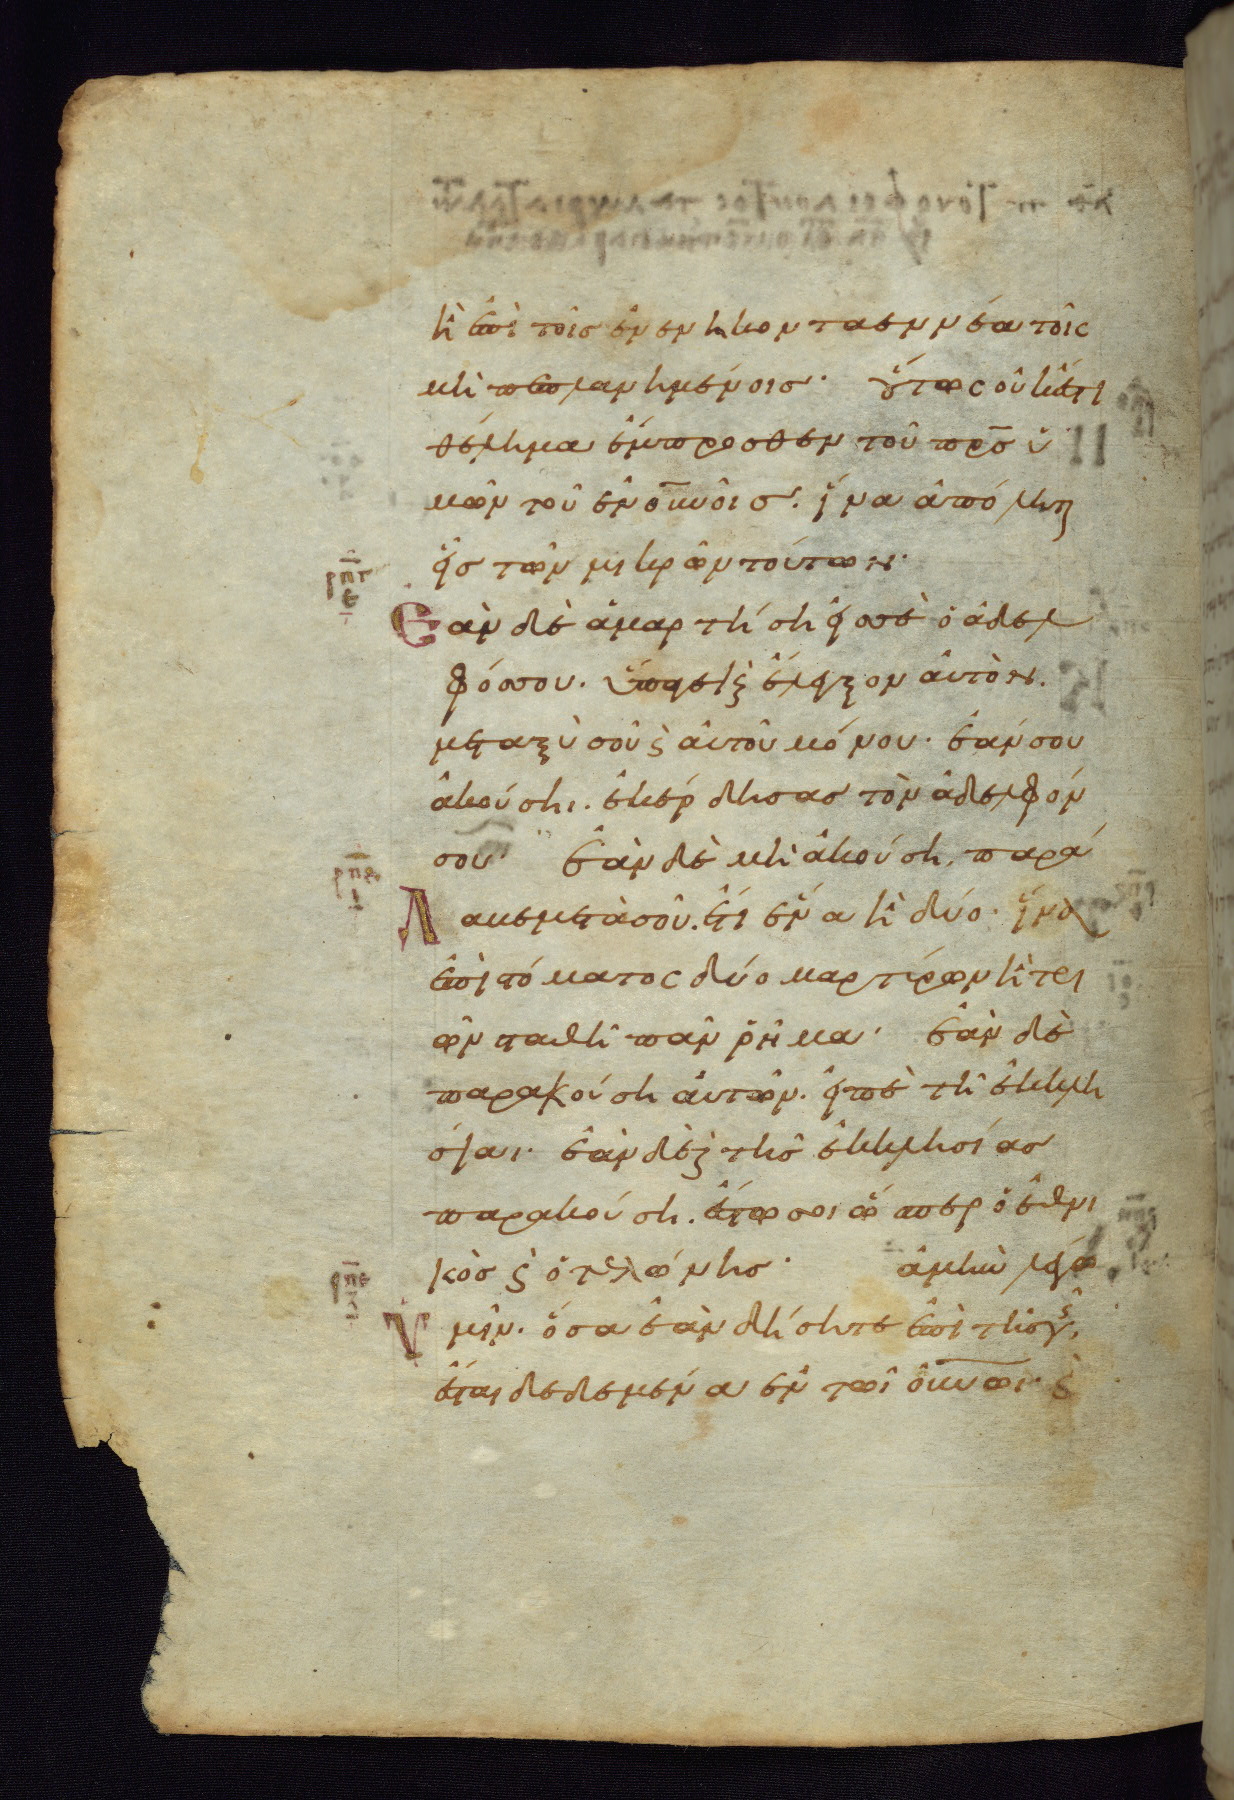 ἢ ἐπὶ τοῖσ ἐνενήκοντα ἐννέα τοῖς
μὴ πεπλανημένοισ· οὕτως οὐκ ἔστι
θέλημα ἔμπροσθεν τοῦ πρ̅σ ὑ
μῶν τοῦ ἐν ο̅υνοῖσ. ἵνα ἀπόληται
εἷσ τῶν μικρῶν τούτων·
ρπ̅γ
ε
Ἐὰν δὲ ἁμαρτήση εἰσ σὲ ὁ ἀδελ
φόσ σου. ὕπαγε καὶ ἔλεγξον ἀυτὸν.
μεταξὺ σοῦ καὶ ἀυτοῦ μόνου· ἐάν σου
ἀκούση. ἐκέρδησασ τὸν ἀδελφόν
σου· ἐὰν δὲ μὴ ἀκούση, παρά
Λαβε μετὰ σοῦ. ἔτι ἕνα ἢ δύο· ἵνα
ἐπὶ στόματος δύο μαρτύρων ἢ τρι
ῶν σταθῆ πᾶν ῥῆμα· ἐὰν δὲ
παρακούση ἀυτῶν. εἰπὲ τῆ ἐκκλη
σίαι· ἐὰν δὲ καὶ τῆσ ἐκκλησίασ
παρακούση. ἔστω σοι ὥσπερ ὁ ἐθνι
κὸσ καὶ ὁ τελώνησ· ἀμὴν λέγω
Ὑμῖν. ὅσα ἐὰν δήσητε ἐπὶ τῆσ γῆς,
ἔσται δεδεμένα ἐν τῶι ο̅υνῶι· καὶ